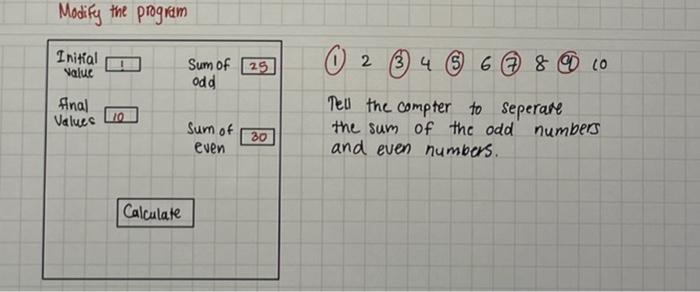 Modify the program
Initial
value
1
Sum of
odd
25
final
values
10
Sum of
even
30
Calculate
1 2 3 4 5 6 7 8 9 10
Tell the compter to seperate
the sum of the odd numbers
and even numbers.